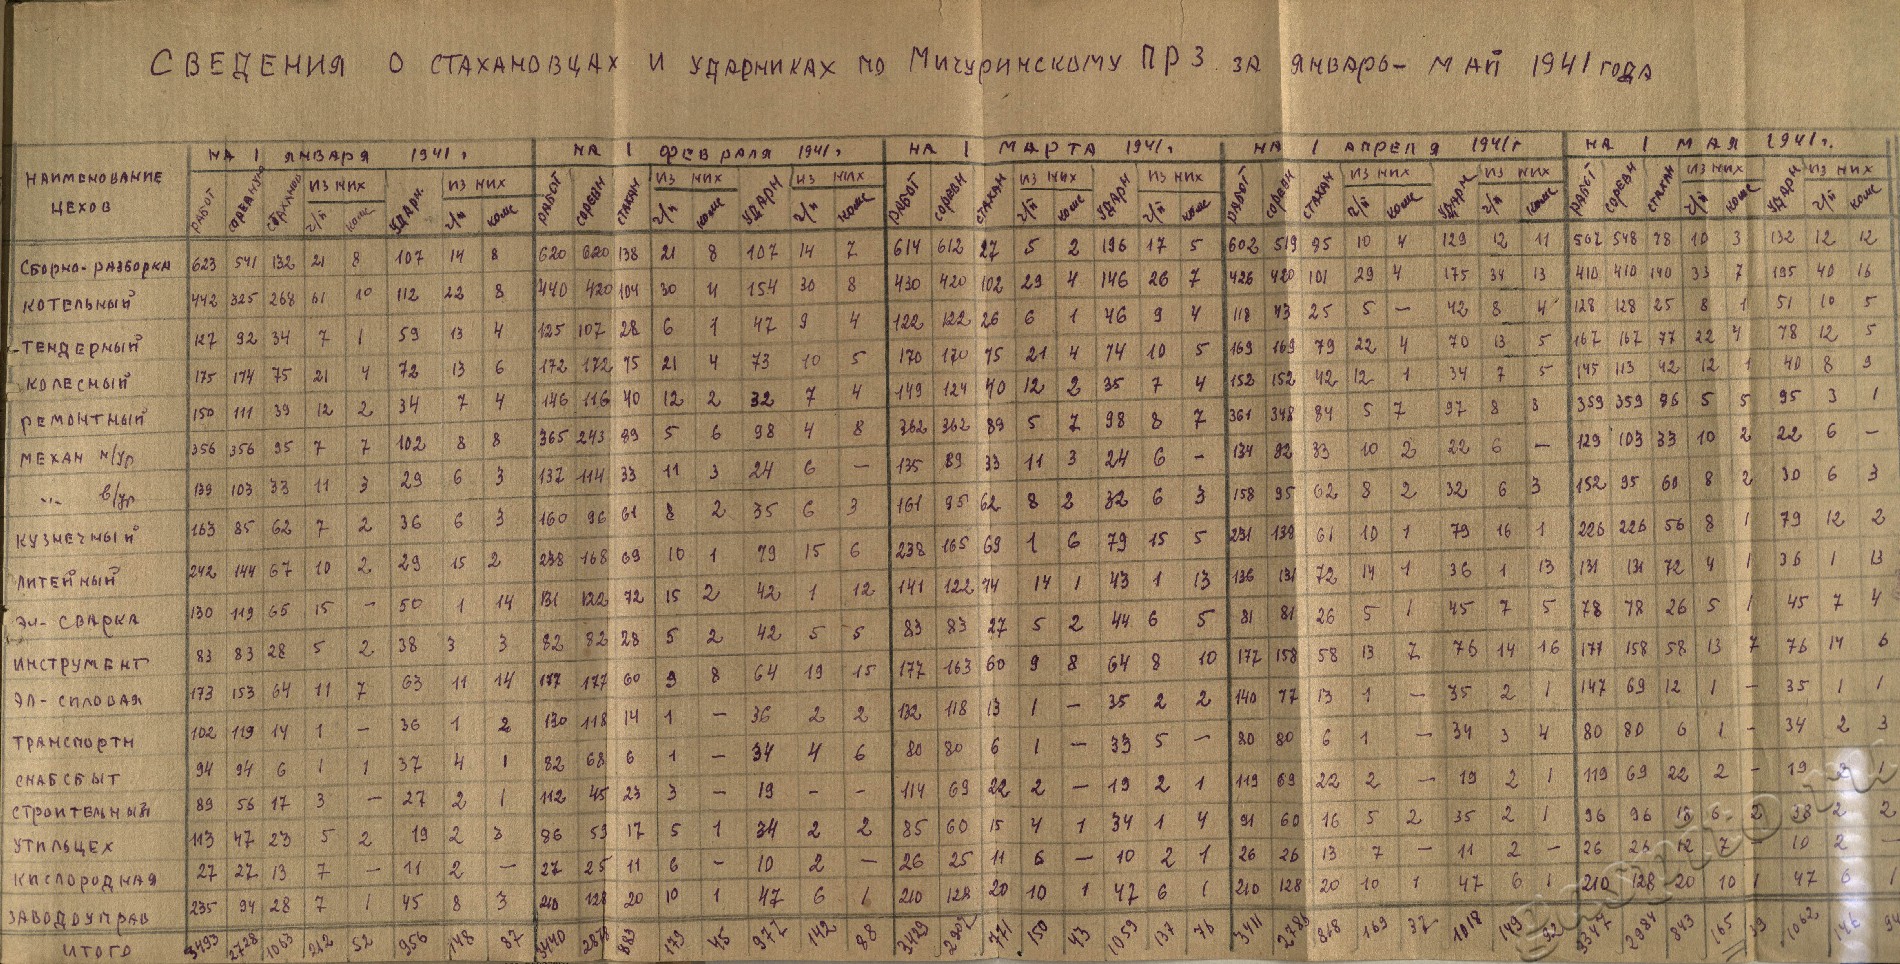 СВЕДЕНИЯ О СТАХАНОВЦАХ И УДАРНИКАХ ПО МИЧУРИНСКОМУ ПРЗ ЗА ЯНВАРЬ - МАЙ 1941 ГОДА
НАИМЕНОВАНИЕ ЦЕХОВ НА 1 ЯНВАРЯ 1941 г НА 1 ФЕВРАЛЯ 1941 г. НА 1 МАРТА 1941 г. НА 1 АПРЕЛЯ 1941 г НА 1 МАЯ 1941 г.
ИЗ НИХ ИЗ НИХ ИЗ НИХ ИЗ НИХ ИЗ НИХ ИЗ НИХ ИЗ НИХ ИЗ НИХ ИЗ НИХ ИЗ НИХ
РАБОТ УДАРН. РАБОТ СОРЕВН СТАХАН УДАРН РАБОТ СОРЕВН СТАХАН УДАРН РАБОТ СОРЕВН СТАХАН УДАРН РАБОТ СОРЕВН СТАХАН УДАРН
СБОРНО-РАЗБОРКА 623 541 132 21 8 107 14 8 620 620 138 21 8 107 14 7 614 612 27 5 2 196 17 5 602 519 95 10 4 129 12 11 567 548 78 10 3 132 12 12
КОТЕЛЬНЫЙ 442 325 268 61 10 112 22 8 440 420 104 30 4 154 30 8 430 420 102 29 4 146 26 7 426 420 101 29 4 175 34 13 410 410 140 33 7 195 40 16
ТЕНДЕРНЫЙ 127 92 34 7 1 59 13 4 125 107 28 6 1 47 9 4 122 122 26 6 1 46 9 4 118 43 25 5 — 42 8 4 128 128 25 8 1 51 10 5
КОЛЕСНЫЙ 175 174 75 21 4 72 13 6 172 172 75 21 4 73 10 5 170 170 75 21 4 74 10 5 169 169 79 22 4 70 13 5 167 167 77 22 4 78 12 5
РЕМОНТНЫЙ 150 111 39 12 2 34 7 4 146 116 40 12 2 32 7 4 149 124 40 12 2 35 7 4 152 152 42 12 1 34 7 5 145 113 42 12 1 40 8 9
МЕХАН М/УР 356 356 95 7 7 102 8 8 365 243 89 5 6 98 4 8 362 362 89 5 7 98 8 7 361 348 84 5 7 97 8 8 359 359 96 5 5 95 3 1
" В/УР 139 103 33 11 3 29 6 3 137 114 33 11 3 24 6 — 135 89 33 11 3 24 6 - 134 82 83 10 2 22 6 — 129 103 33 10 2 22 6 —
КУЗНЕЧНЫЙ 163 85 62 7 2 36 6 3 160 96 61 8 2 35 6 3 161 95 62 8 2 32 6 3 158 95 62 8 2 32 6 3 152 95 60 8 2 30 6 3
ЛИТЕЙНЫЙ 242 144 67 10 2 29 15 2 238 168 69 10 1 79 15 6 238 165 69 1 6 79 15 5 231 139 61 10 1 79 16 1 226 226 56 8 1 79 12 2
ЭЛ-СВАРКА 130 119 65 15 — 50 1 14 131 122 72 15 2 42 1 12 141 122 74 14 1 43 1 13 136 131 72 14 1 36 1 13 131 131 72 4 1 36 1 13
ИНСТРУМЕНТ 83 83 28 5 2 38 3 3 82 82 28 5 2 42 5 5 83 83 27 5 2 44 6 5 81 81 26 5 1 45 7 5 78 78 26 5 1 45 7 4
ЭЛ-СИЛОВАЯ 173 153 64 11 7 63 11 14 177 177 60 9 8 64 19 15 177 163 60 9 8 64 8 10 177 158 58 13 7 76 14 16 177 158 58 13 7 76 14 6
ТРАНСПОРТН 102 119 14 1 — 36 1 2 130 118 14 1 — 36 2 2 132 118 13 1 — 35 2 2 140 77 13 1 — 35 2 1 147 69 12 1 — 35 1 1
СНАБСБЫТ 94 94 6 1 1 37 4 1 82 68 6 1 — 34 4 6 80 80 6 1 — 33 5 — 80 80 6 1 — 34 3 4 80 80 6 1 — 34 2 3
СТРОИТЕЛЬНЫЙ 89 56 17 3 — 27 2 1 112 45 23 3 — 19 - - 114 69 22 2 — 19 2 1 119 69 22 2 — 19 2 1 119 69 22 2 - 19 1
УТИЛЬЦЕХ 113 47 23 5 2 19 2 3 86 59 17 5 1 34 2 2 85 60 15 4 1 34 1 4 91 60 16 5 2 35 2 1 96 96 18 6 2 38 2 2
КИСЛОРОДНАЯ 27 27 13 7 — 11 2 — 27 25 11 6 — 10 2 — 26 25 11 6 — 10 2 1 26 26 13 7 — 11 2 — 26 26 12 7 — 10 2 —
ЗАВОДОУПРАВ 235 94 28 7 1 45 8 3 210 128 20 10 1 47 6 1 210 128 20 10 1 47 6 1 210 128 20 10 1 47 6 1 210 128 20 10 1 47 6 1
ИТОГО 3493 2728 1063 212 52 956 148 87 3440 2878 883 179 45 972 142 88 3429 2902 771 150 43 1059 137 76 3411 2786 818 169 37 1018 149 92 3347 2984 843 165 39 1062 146 94